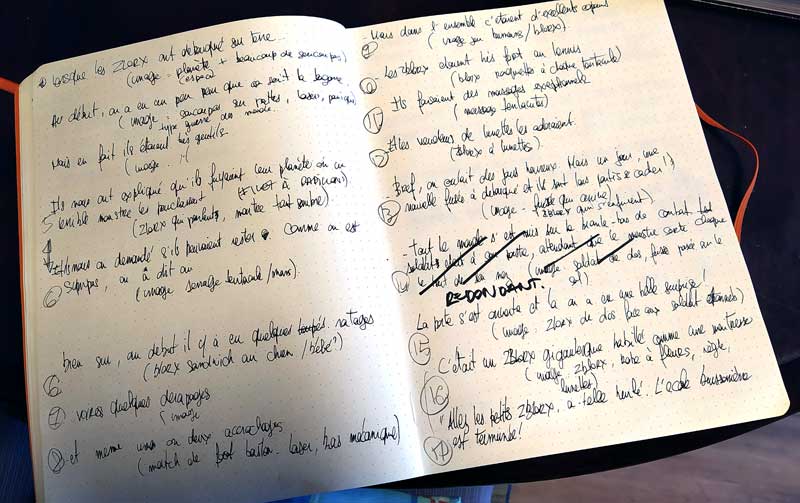 ① Lorsque les Zblorx ont débarqué sur terre...
(image - planète + beaucoup de soucoupes)
(espace)
Au début, on a eu un peu peur que ce soit la bagarre
(image : soucoupes sur pattes, laser, panique,
type guerre des mondes.
Mais en fait ils étaient très gentils.
(image... :(
Ils nous ont expliqué qu'ils fuyaient leur planète où un
5 terrible monstre les pourchassait
(zblorx qui parlent, monstre tout sombre)
Et ils nous on demandé s'ils pouvaient rester. Comme on est
sympas, on a dit oui
(image serrage tentacule/main).
6 bien sur, au début il y a eu quelques ratages
(blorx sandwich au chien / bébé?)
⑦ voires quelques dérapages
(image
⑧ et meme un ou deux accrochages
(match de foot baston - laser, bras mécanique)
- Mais dans l'ensemble c'étaient d'excellents copains
⑨ (image sur humans / blorx).
- Les zblorx étaient très fort au tennis
(blorx raquettes à chaque tentacule)
⑪ Ils faisaient des massages exceptionnels
(massage tentacules)
⑫ Et les vendeurs de lunettes les adoraient.
(zblorx à lunettes).
Bref, on coulait des jours heureux. Mais un jour, une
nouvelle fusée a débarqué et ils sont tous partis se cacher !
⑬ (image - fusée qui arrive
zblorx qui s'enfuient).
- Tout le monde s'est mis sur le branle-bas de combat. Tout
soldats était à son poste, attendant que le monstre sorte chaque
le bout de son nez (image soldat de dos, fusée posée sur le
sol)
REDONDANT.
La porte s'est ouverte et là on a eu une belle surprise !
⑮ (image : zblorx de dos face aux soldats étonnés)
C'était un Zblorx gigantesque habillé comme une maitresse
⑯ (image zblorx, robe à fleurs, règle,
lunettes)
"Allez les petits Zblorx, a-t-elle hurlé. L'école buissonnière
⑰ est terminée !